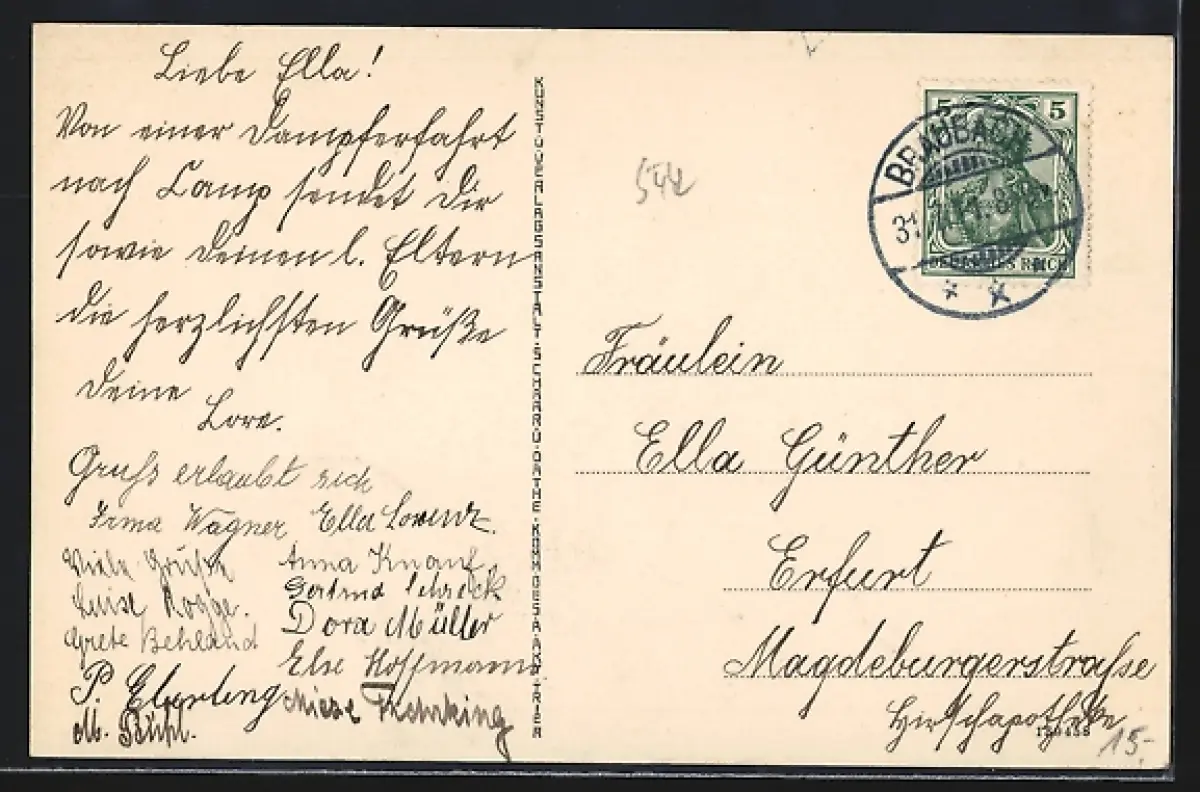 Liebe Ella!
Von einer Dampferfahrt
nach Camp sendet Dir
sowie Deinen l. Eltern
die herzlichsten Grüße
Deine
Lore.
Gruss erlaubt sich
Irma Wagner Ella Lorenz.
Viele Grüße
Luise Rogge.
Grete Behland
P. Eberling
M. Bühl.
Anna Knauf
Gertrud Schreck
Dora Müller
Else Hoffmann
Mieze
KUNST-U-VERLAGSANSTALT-SCHAAR-U-DATHE-KOMM-GES-A-AKT-TRIER
544
5 5
BRAUBACH
31
DEUTSCHES REICH
Fräulein
Ella Günther
Erfurt
Magdeburgerstraße
Hirschapotheke
15,-